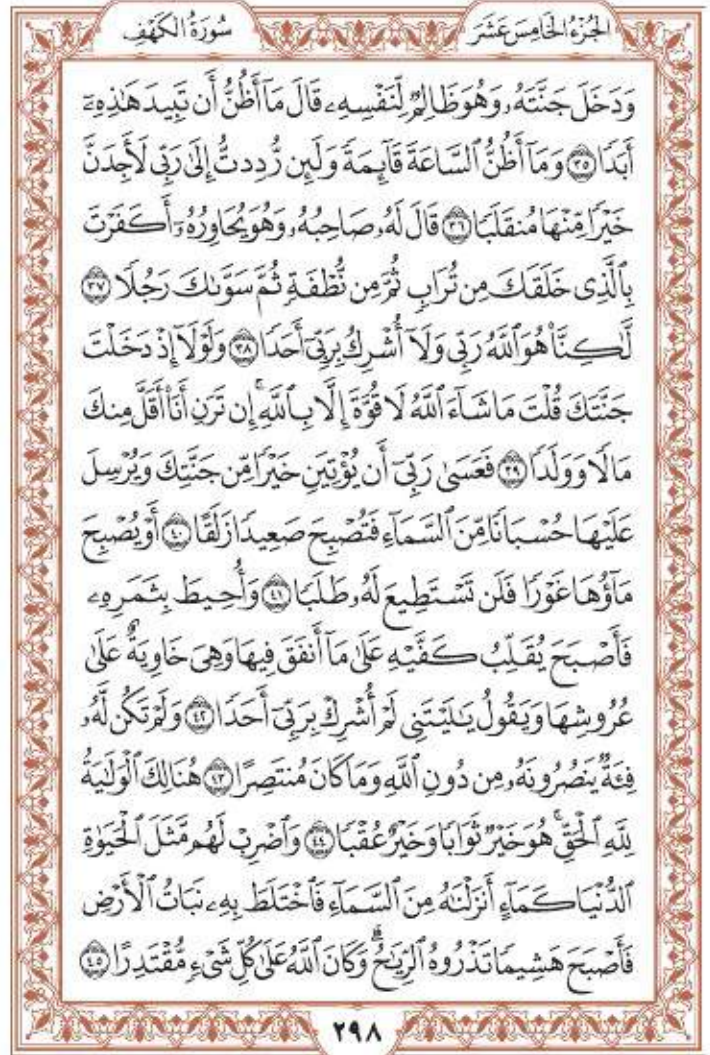 سُورَةُ الكَهْفِ
الجُزْءُ الخَامِسَ عَشَرَ
وَدَخَلَ جَنَّتَهُۥ وَهُوَ ظَالِمٌ لِّنَفْسِهِۦ قَالَ مَآ أَظُنُّ أَن تَبِيدَ هَٰذِهِۦٓ
أَبَدًا ۝٣٥ وَمَآ أَظُنُّ ٱلسَّاعَةَ قَآئِمَةً وَلَئِن رُّدِدتُّ إِلَىٰ رَبِّى لَأَجِدَنَّ
خَيْرًا مِّنْهَا مُنقَلَبًا ۝٣٦ قَالَ لَهُۥ صَاحِبُهُۥ وَهُوَ يُحَاوِرُهُۥٓ أَكَفَرْتَ
بِٱلَّذِى خَلَقَكَ مِن تُرَابٍ ثُمَّ مِن نُّطْفَةٍ ثُمَّ سَوَّىٰكَ رَجُلًا ۝٣٧
لَّٰكِنَّا۠ هُوَ ٱللَّهُ رَبِّى وَلَآ أُشْرِكُ بِرَبِّىٓ أَحَدًا ۝٣٨ وَلَوْلَآ إِذْ دَخَلْتَ
جَنَّتَكَ قُلْتَ مَا شَآءَ ٱللَّهُ لَا قُوَّةَ إِلَّا بِٱللَّهِ ۚ إِن تَرَنِ أَنَا۠ أَقَلَّ مِنكَ
مَالًا وَوَلَدًا ۝٣٩ فَعَسَىٰ رَبِّىٓ أَن يُؤْتِيَنِ خَيْرًا مِّن جَنَّتِكَ وَيُرْسِلَ
عَلَيْهَا حُسْبَانًا مِّنَ ٱلسَّمَآءِ فَتُصْبِحَ صَعِيدًا زَلَقًا ۝٤٠ أَوْ يُصْبِحَ
مَآؤُهَا غَوْرًا فَلَن تَسْتَطِيعَ لَهُۥ طَلَبًا ۝٤١ وَأُحِيطَ بِثَمَرِهِۦ
فَأَصْبَحَ يُقَلِّبُ كَفَّيْهِ عَلَىٰ مَآ أَنفَقَ فِيهَا وَهِىَ خَاوِيَةٌ عَلَىٰ
عُرُوشِهَا وَيَقُولُ يَٰلَيْتَنِى لَمْ أُشْرِكْ بِرَبِّىٓ أَحَدًا ۝٤٢ وَلَمْ تَكُن لَّهُۥ
فِئَةٌ يَنصُرُونَهُۥ مِن دُونِ ٱللَّهِ وَمَا كَانَ مُنتَصِرًا ۝٤٣ هُنَالِكَ ٱلْوَلَٰيَةُ
لِلَّهِ ٱلْحَقِّ ۚ هُوَ خَيْرٌ ثَوَابًا وَخَيْرٌ عُقْبًا ۝٤٤ وَٱضْرِبْ لَهُم مَّثَلَ ٱلْحَيَوٰةِ
ٱلدُّنْيَا كَمَآءٍ أَنزَلْنَٰهُ مِنَ ٱلسَّمَآءِ فَٱخْتَلَطَ بِهِۦ نَبَاتُ ٱلْأَرْضِ
فَأَصْبَحَ هَشِيمًا تَذْرُوهُ ٱلرِّيَٰحُ ۗ وَكَانَ ٱللَّهُ عَلَىٰ كُلِّ شَىْءٍ مُّقْتَدِرًا ۝٤٥
٢٩٨